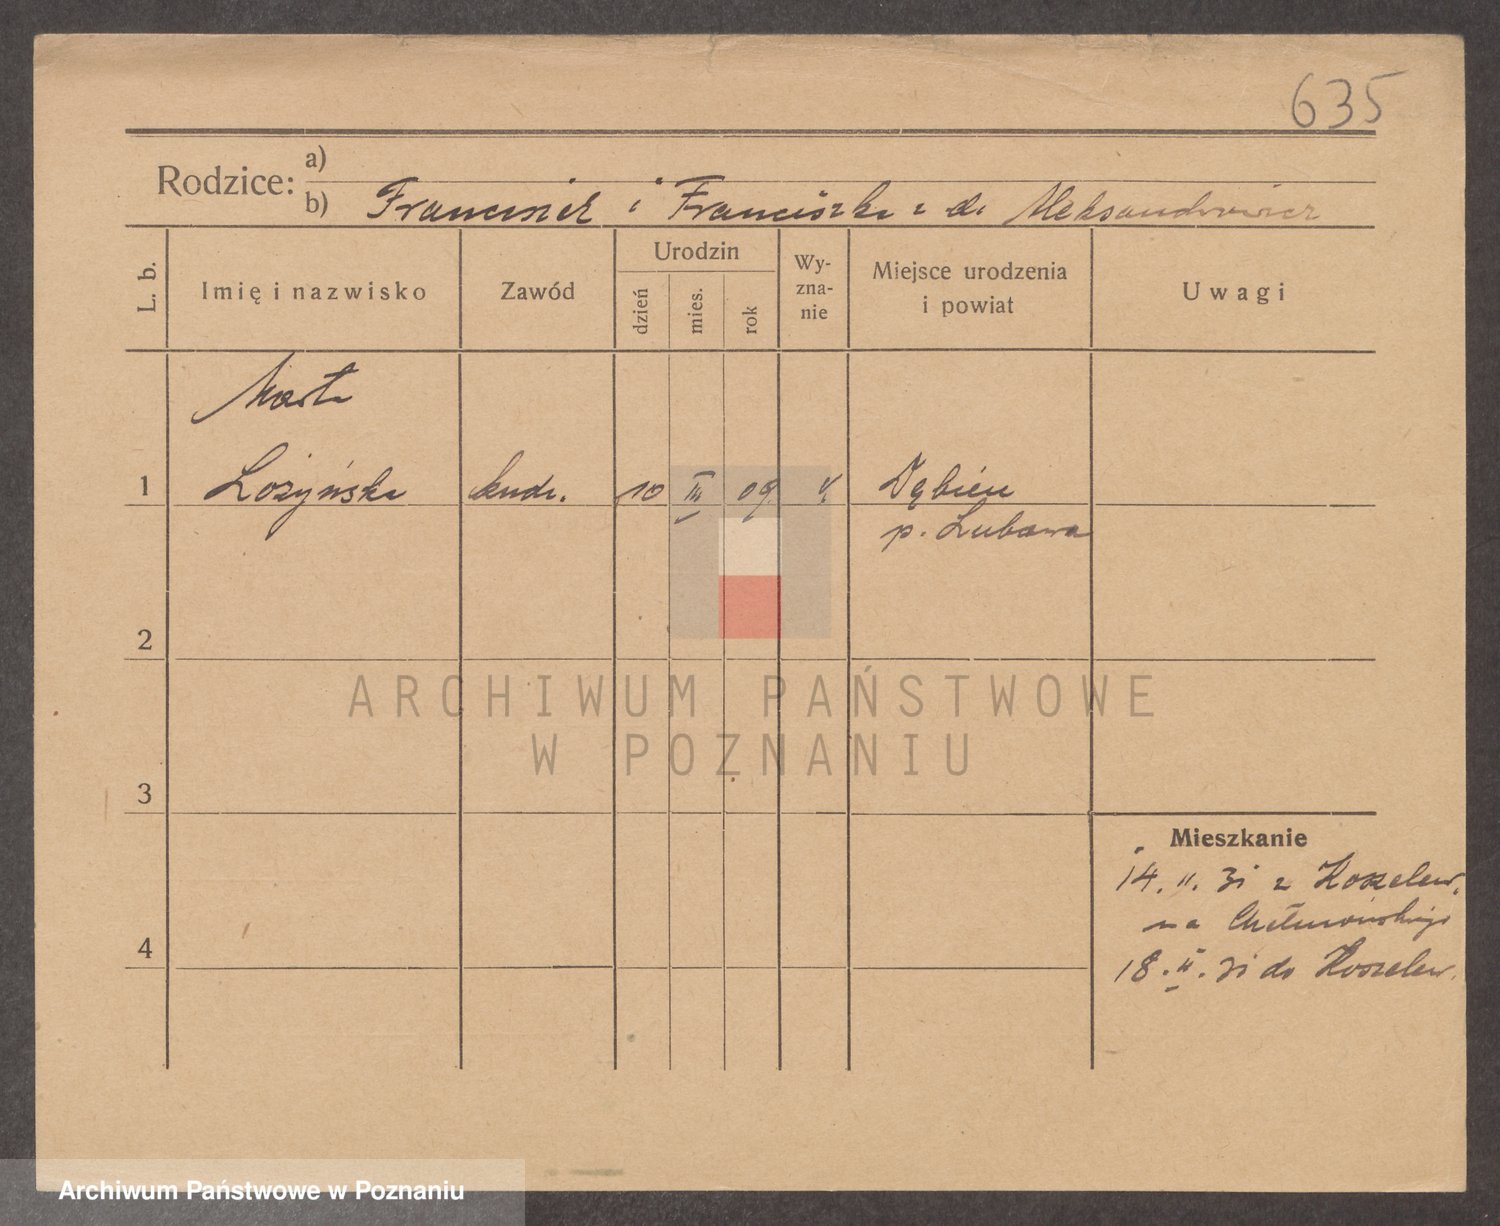 635
Rodzice:
a)
b) Franciszek i Franciszka z d. Aleksandrowicz
L. b.
Imię i nazwisko
Zawód
Urodzin
dzień
mies.
rok
Wy-
zna-
nie
Miejsce urodzenia
i powiat
Uwagi
Marta
1 Łożyńska
10 III 09
p. Lubawa
2
3
4
Mieszkanie
14. II. 31 z Koszelew.
na Chełmońskiego
18. II. 31 do Koszelew.
ARCHIWUM PAŃSTWOWE
W POZNANIU
Archiwum Państwowe w Poznaniu